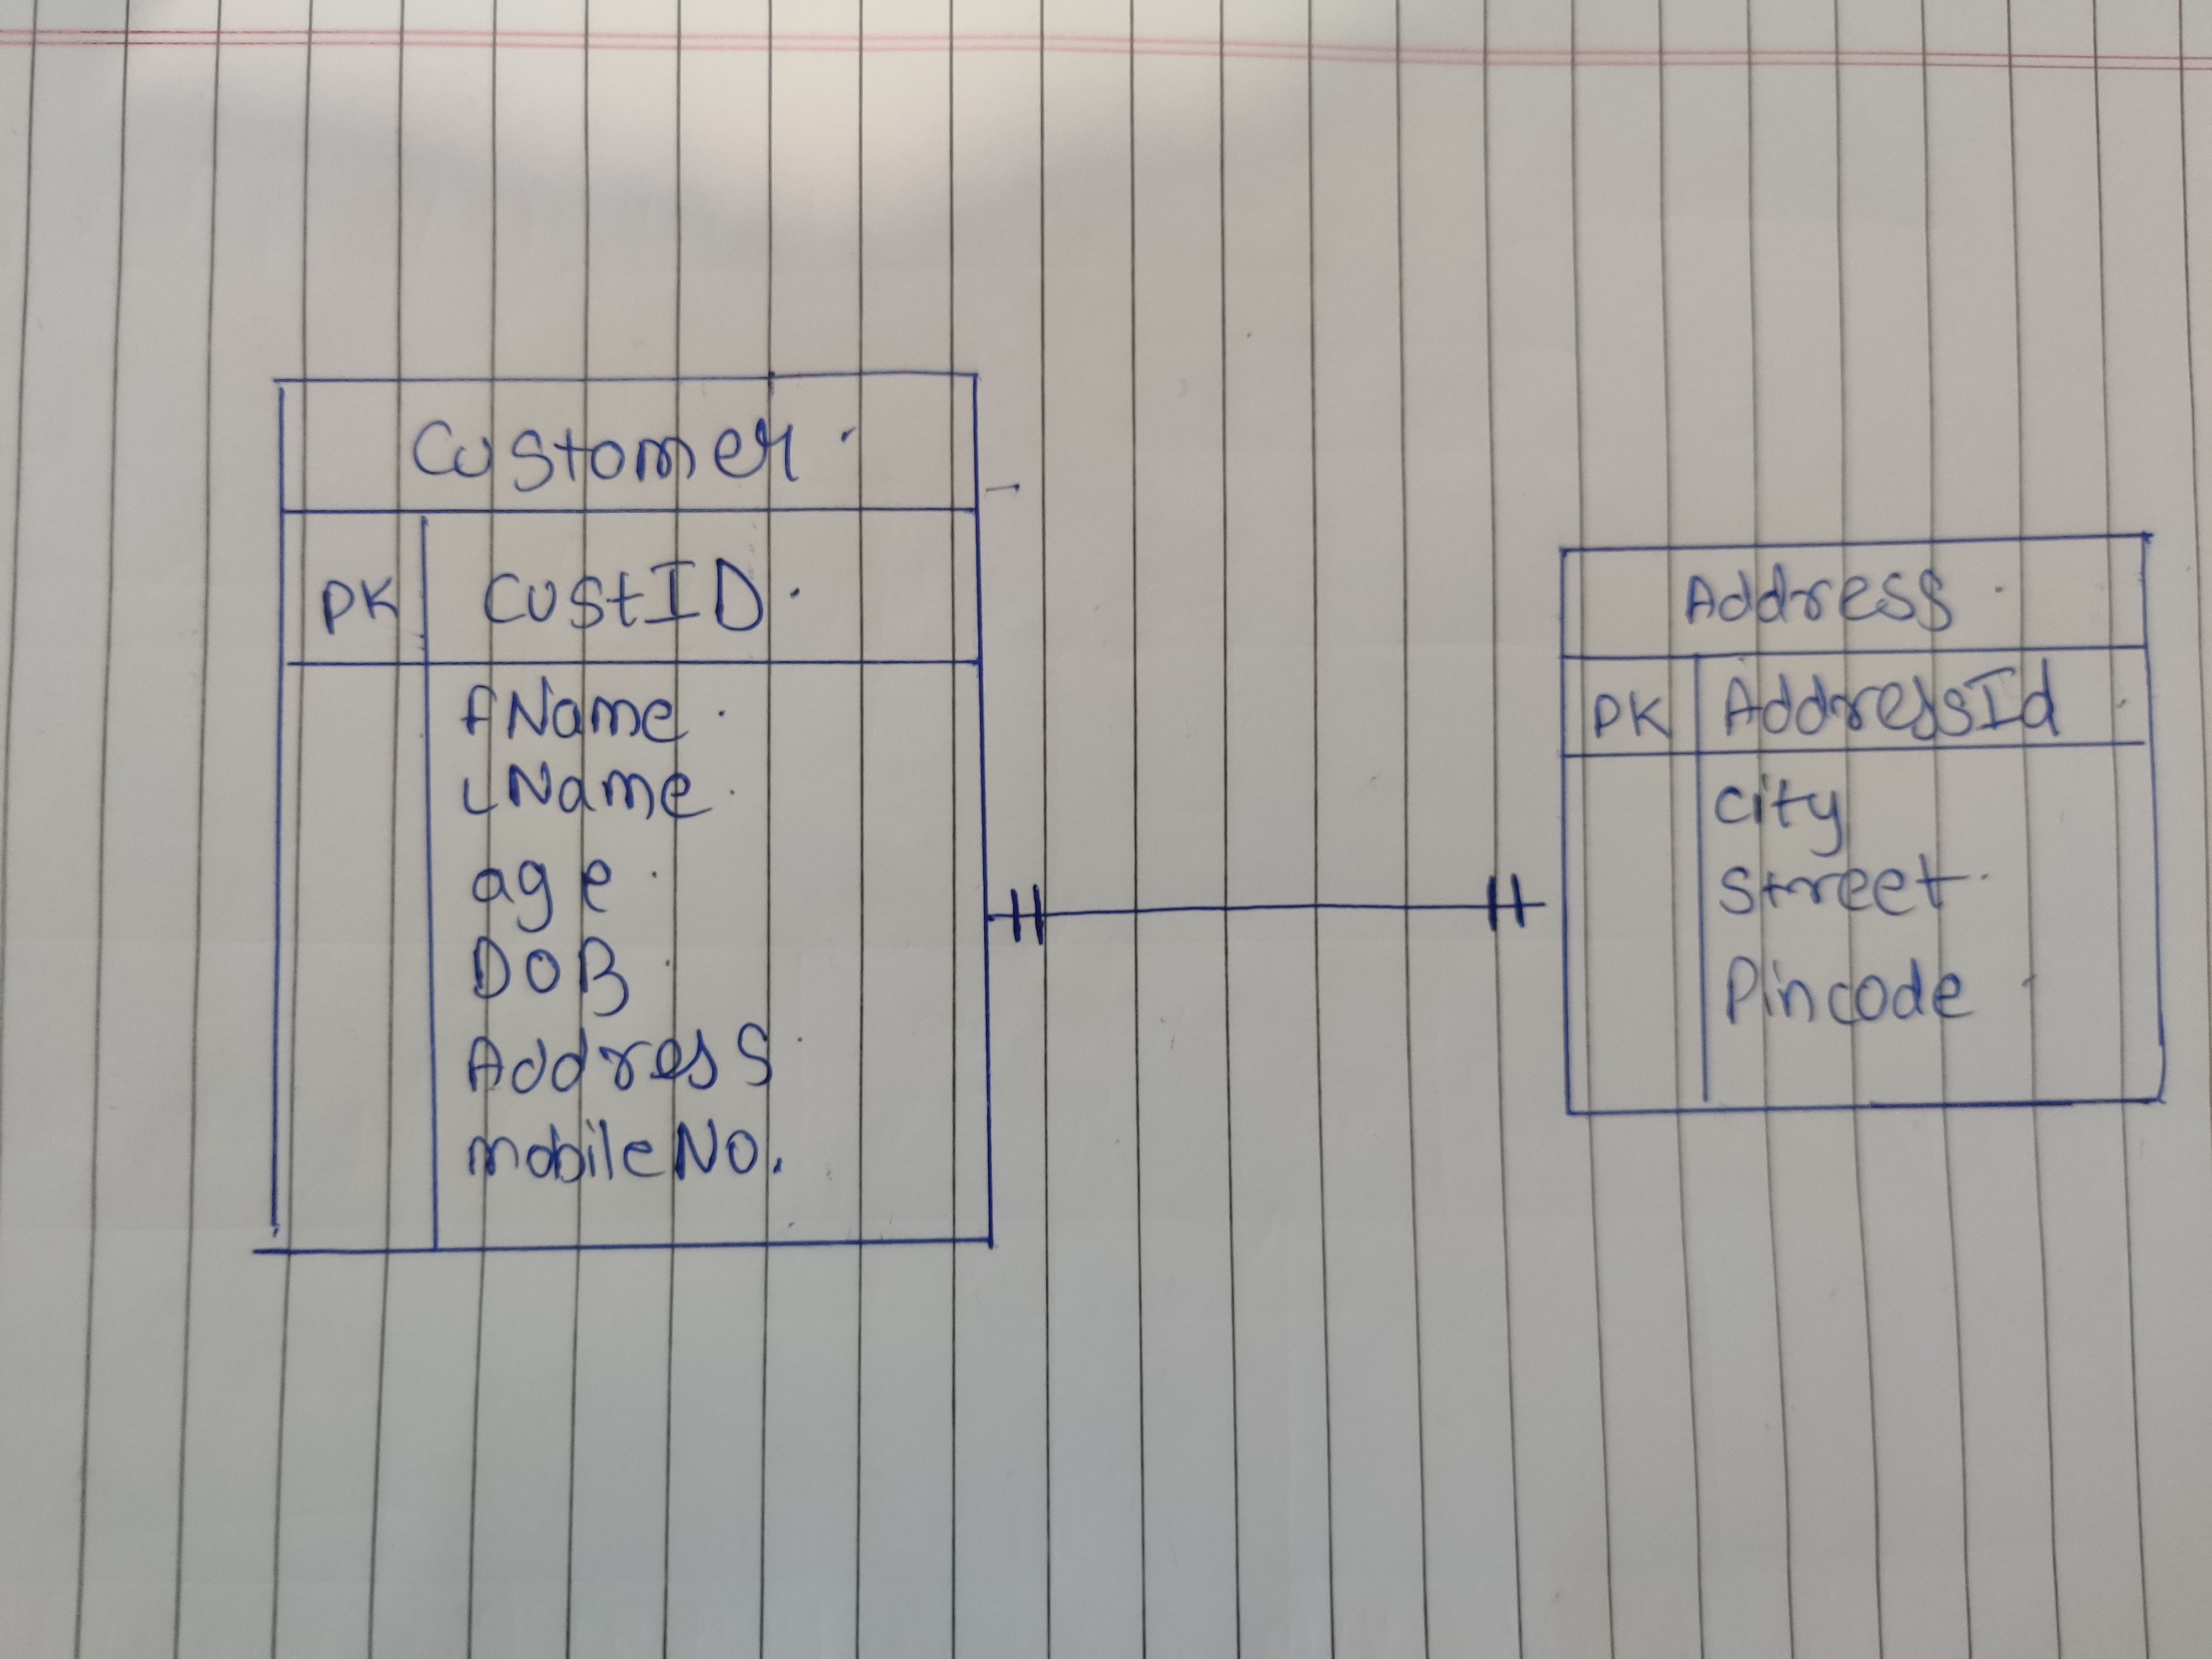 Customer
PK CustID
fName
LName
age
DOB
Address
mobileNo.
Address
PK AddressId
City
Street
Pincode